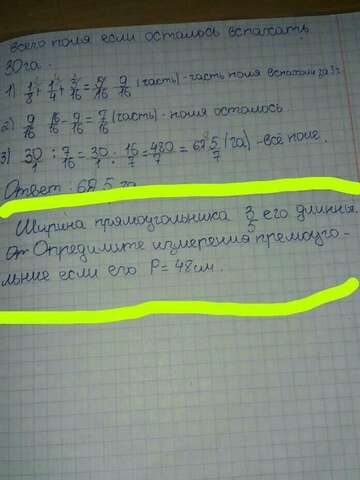 всего поля если осталось вспахать
30га.
1) 1/8 + 1/4 + 3/16 = 9/16 (часть) - часть поля вспахали за 3
2) 16/16 - 9/16 = 7/16 (часть) - поля осталось.
3) 30/1 : 7/16 = 30/1 : 16/7 = 480/7 = 68 5/7 (га) - всё поле.
Ответ: 68 5 га
Ширина прямоугольника 3/5 его длинны
Определите измерения премоуго-
льние если его P = 48см.